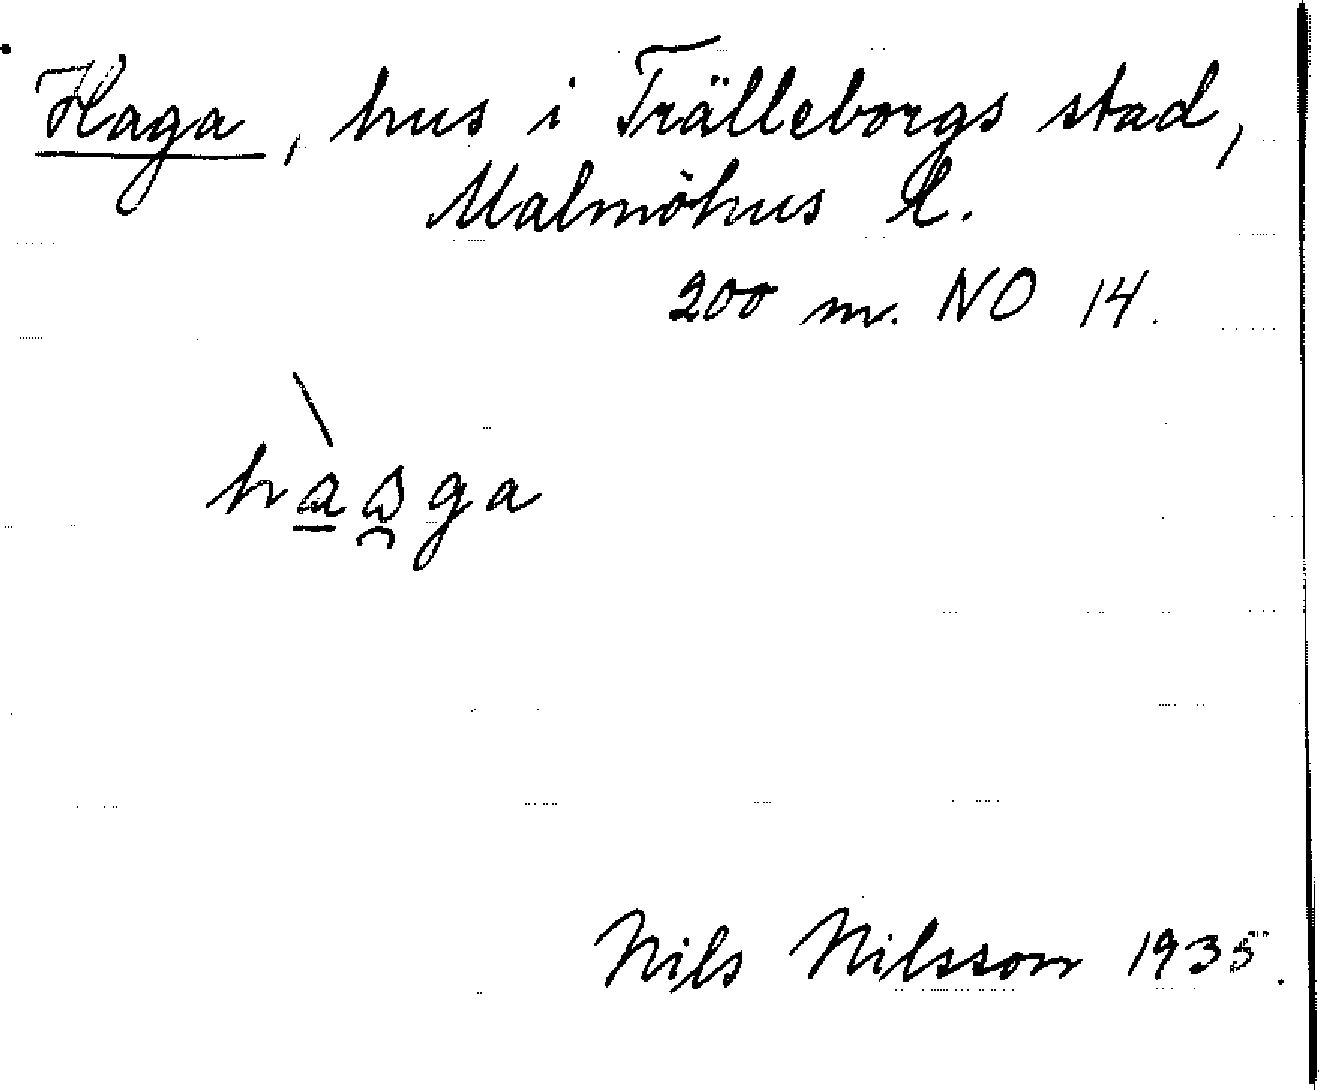 Haga, hus i Trälleborgs stad,
Malmöhus l.
200 m. NO 14.
Nils Nilsson 1935.